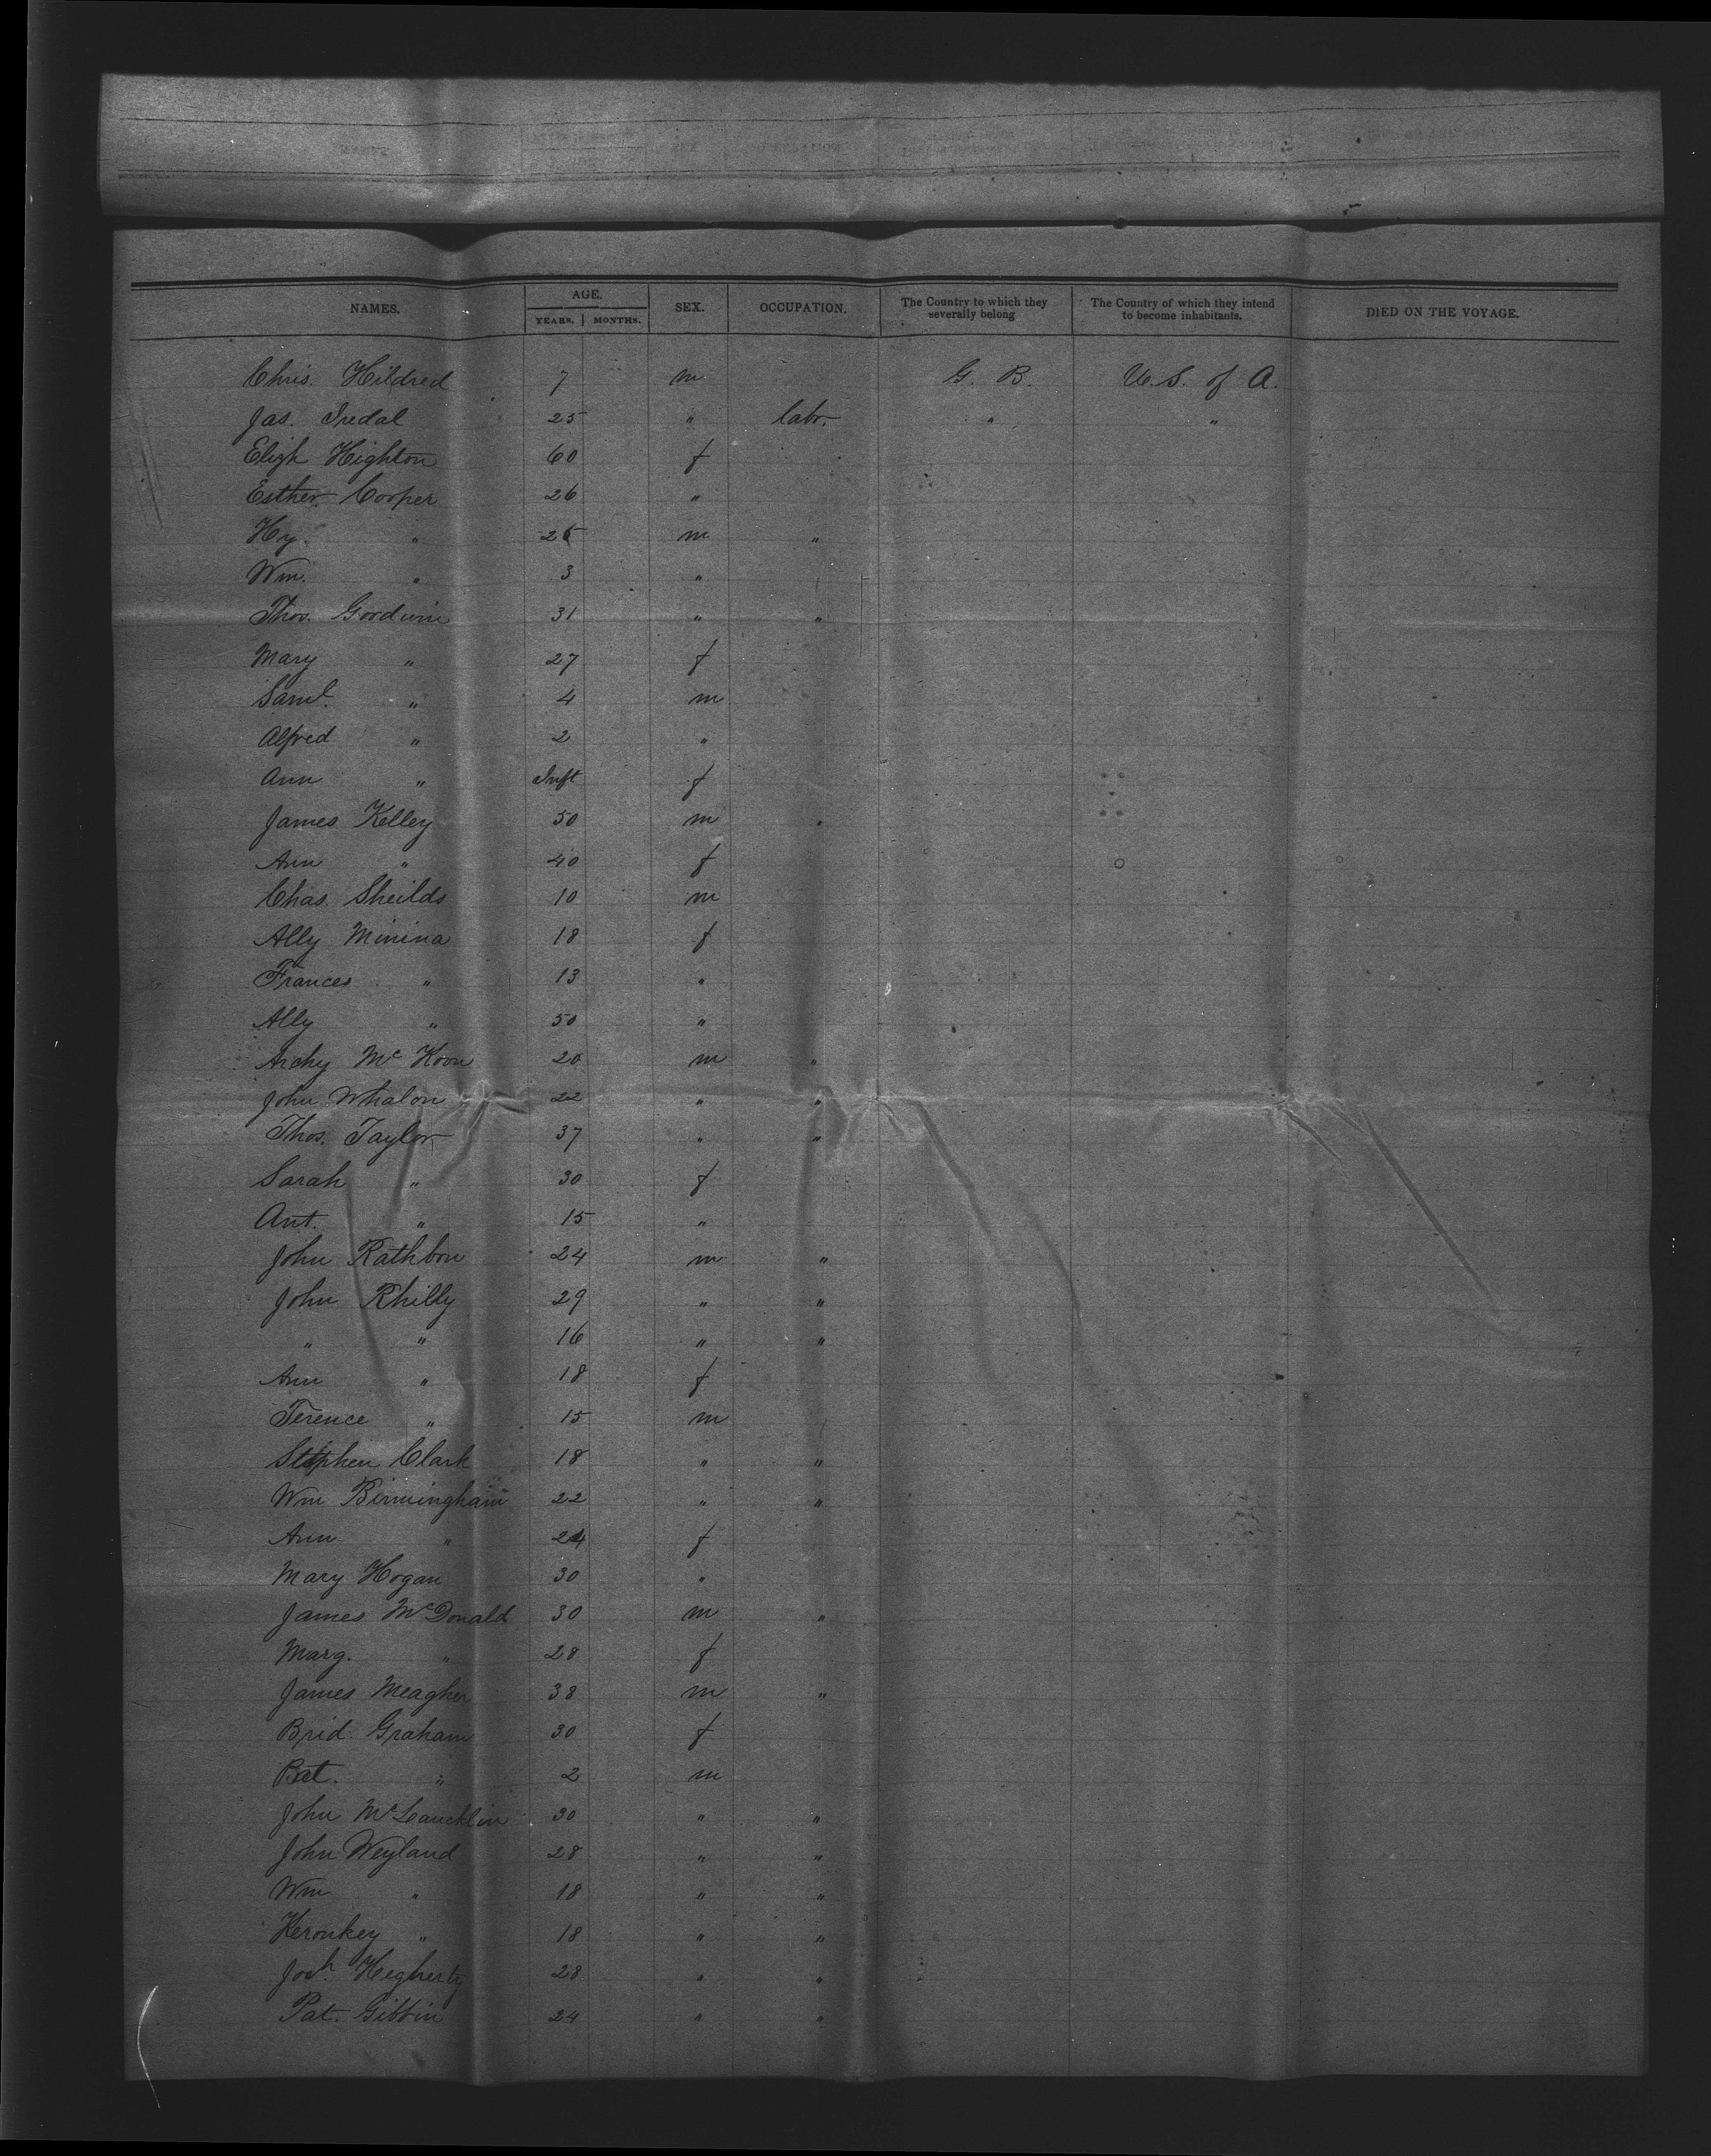 NAMES. AGE. YEARS. MONTHS. SEX. OCCUPATION. The Country to which they severally belong The Country of which they intend to become inhabitants. DIED ON THE VOYAGE.
Chris. Hildred 7 m G. B. U. S. of A.
Jas. Iredal 25 " labr. " "
Elizh Highton 60 f
Esther Cooper 26 "
Hy. " 26 m "
Wm. " 3 "
Thos. Goodwin 31 " "
Mary " 27 f
Saml. " 4 m
Alfred " 2 "
Ann " Inft f
James Kelley 50 m "
Ann " 40 f
Chas. Sheilds 10 m
Ally Minina 18 f
Frances " 13 "
Ally " 50 "
Archy McKoon 20 m "
John Whalon 22 " "
Thos. Taylor 37 " "
Sarah " 30 f
Ant. " 15 "
John Rathbon 24 m "
John Rhilly 29 " "
" " 16 " "
Ann " 18 f
Terence " 15 m
Stephen Clark 18 " "
Wm Birmingham 22 " "
Ann " 24 f
Mary Hogan 30 "
James McDonald 30 m "
Marg. " 28 f
James Meagher 38 m "
Brid. Graham 30 f
Bat. " 2 m
John McLaucklin 30 " "
John Weyland 28 " "
Wm " 18 " "
Keronkey " 18 " "
Josh. Hegherty 28 " "
Pat. Gibbin 24 " "